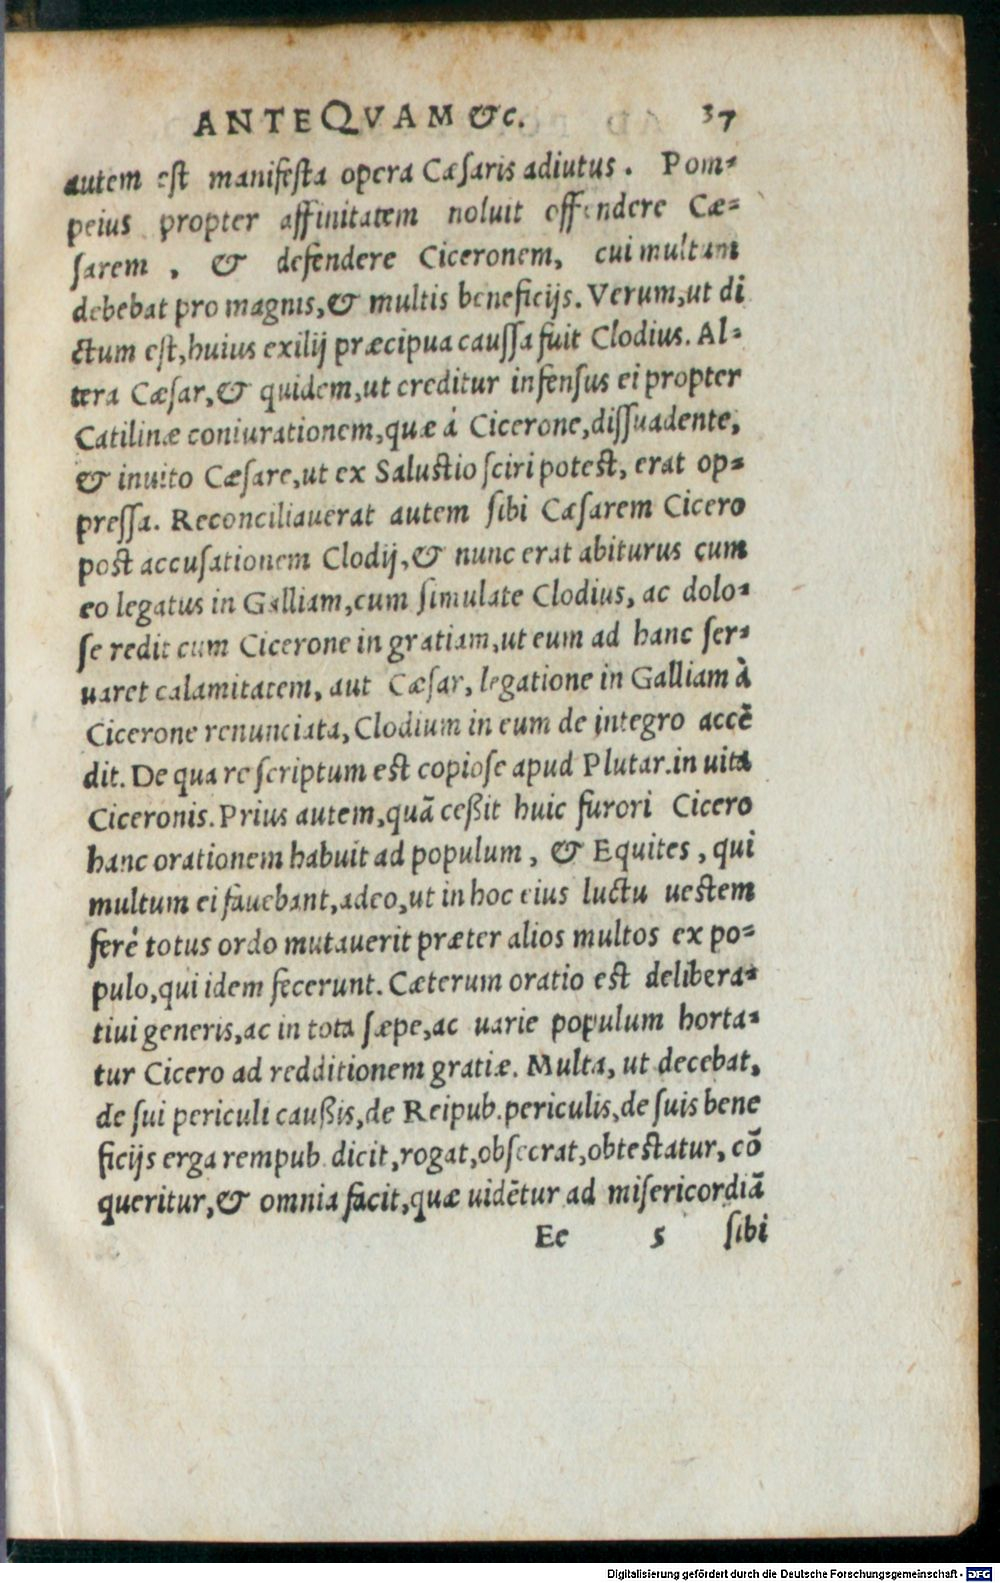 ANTEQVAM &c. 37
autem est manifesta opera Cæsaris adiutus. Pom-
peius propter affinitatem noluit offendere Cæ-
sarem, & defendere Ciceronem, cui multum
debebat pro magnis, & multis beneficijs. Verum, ut di
ctum est, huius exilij præcipua caussa fuit Clodius. Al-
tera Cæsar, & quidem, ut creditur infensus ei propter
Catilinæ coniurationem, quæ á Cicerone, dissuadente,
& inuito Cæsare, ut ex Salustio sciri potest, erat op-
pressa. Reconciliauerat autem sibi Cæsarem Cicero
post accusationem Clodij, & nunc erat abiturus cum
eo legatus in Galliam, cum simulate Clodius, ac dolo-
se redit cum Cicerone in gratiam, ut eum ad hanc ser-
uaret calamitatem, aut Cæsar, legatione in Galliam à
Cicerone renunciata, Clodium in eum de integro accē
dit. De qua re scriptum est copiose apud Plutar. in uita
Ciceronis. Prius autem, quā ceßit huic furori Cicero
hanc orationem habuit ad populum, & Equites, qui
multum ei fauebant, adeo, ut in hoc eius luctu uestem
ferè totus ordo mutauerit præter alios multos ex po-
pulo, qui idem fecerunt. Cæterum oratio est delibera-
tiui generis, ac in tota sæpe, ac uarie populum horta-
tur Cicero ad redditionem gratiæ. Multa, ut decebat,
de sui periculi caußis, de Reipub. periculis, de suis bene
ficijs erga rempub. dicit, rogat, obsecrat, obtestatur, cō
queritur, & omnia facit, quæ uidētur ad misericordiā
Ee 5 sibi
Digitalisierung gefördert durch die Deutsche Forschungsgemeinschaft - DFG